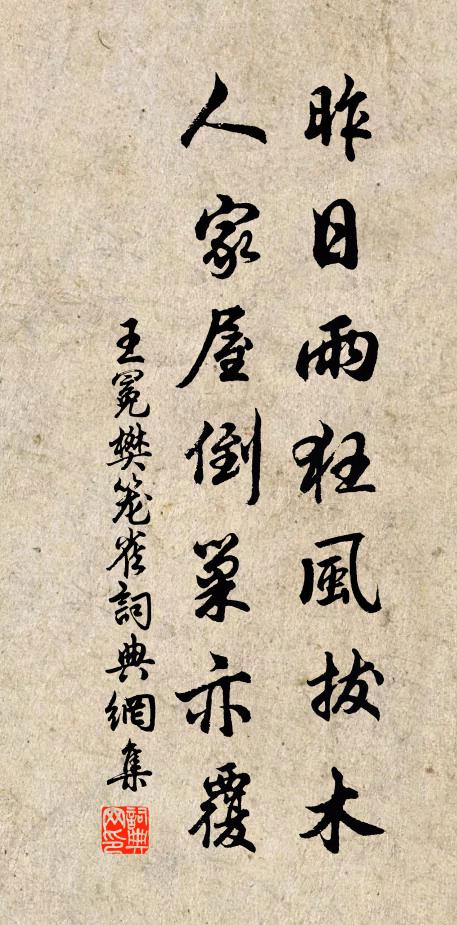 昨日雨狂風拔木
人家屋倒巢亦覆
王冕樊笼雀詞典網集
詞典网印